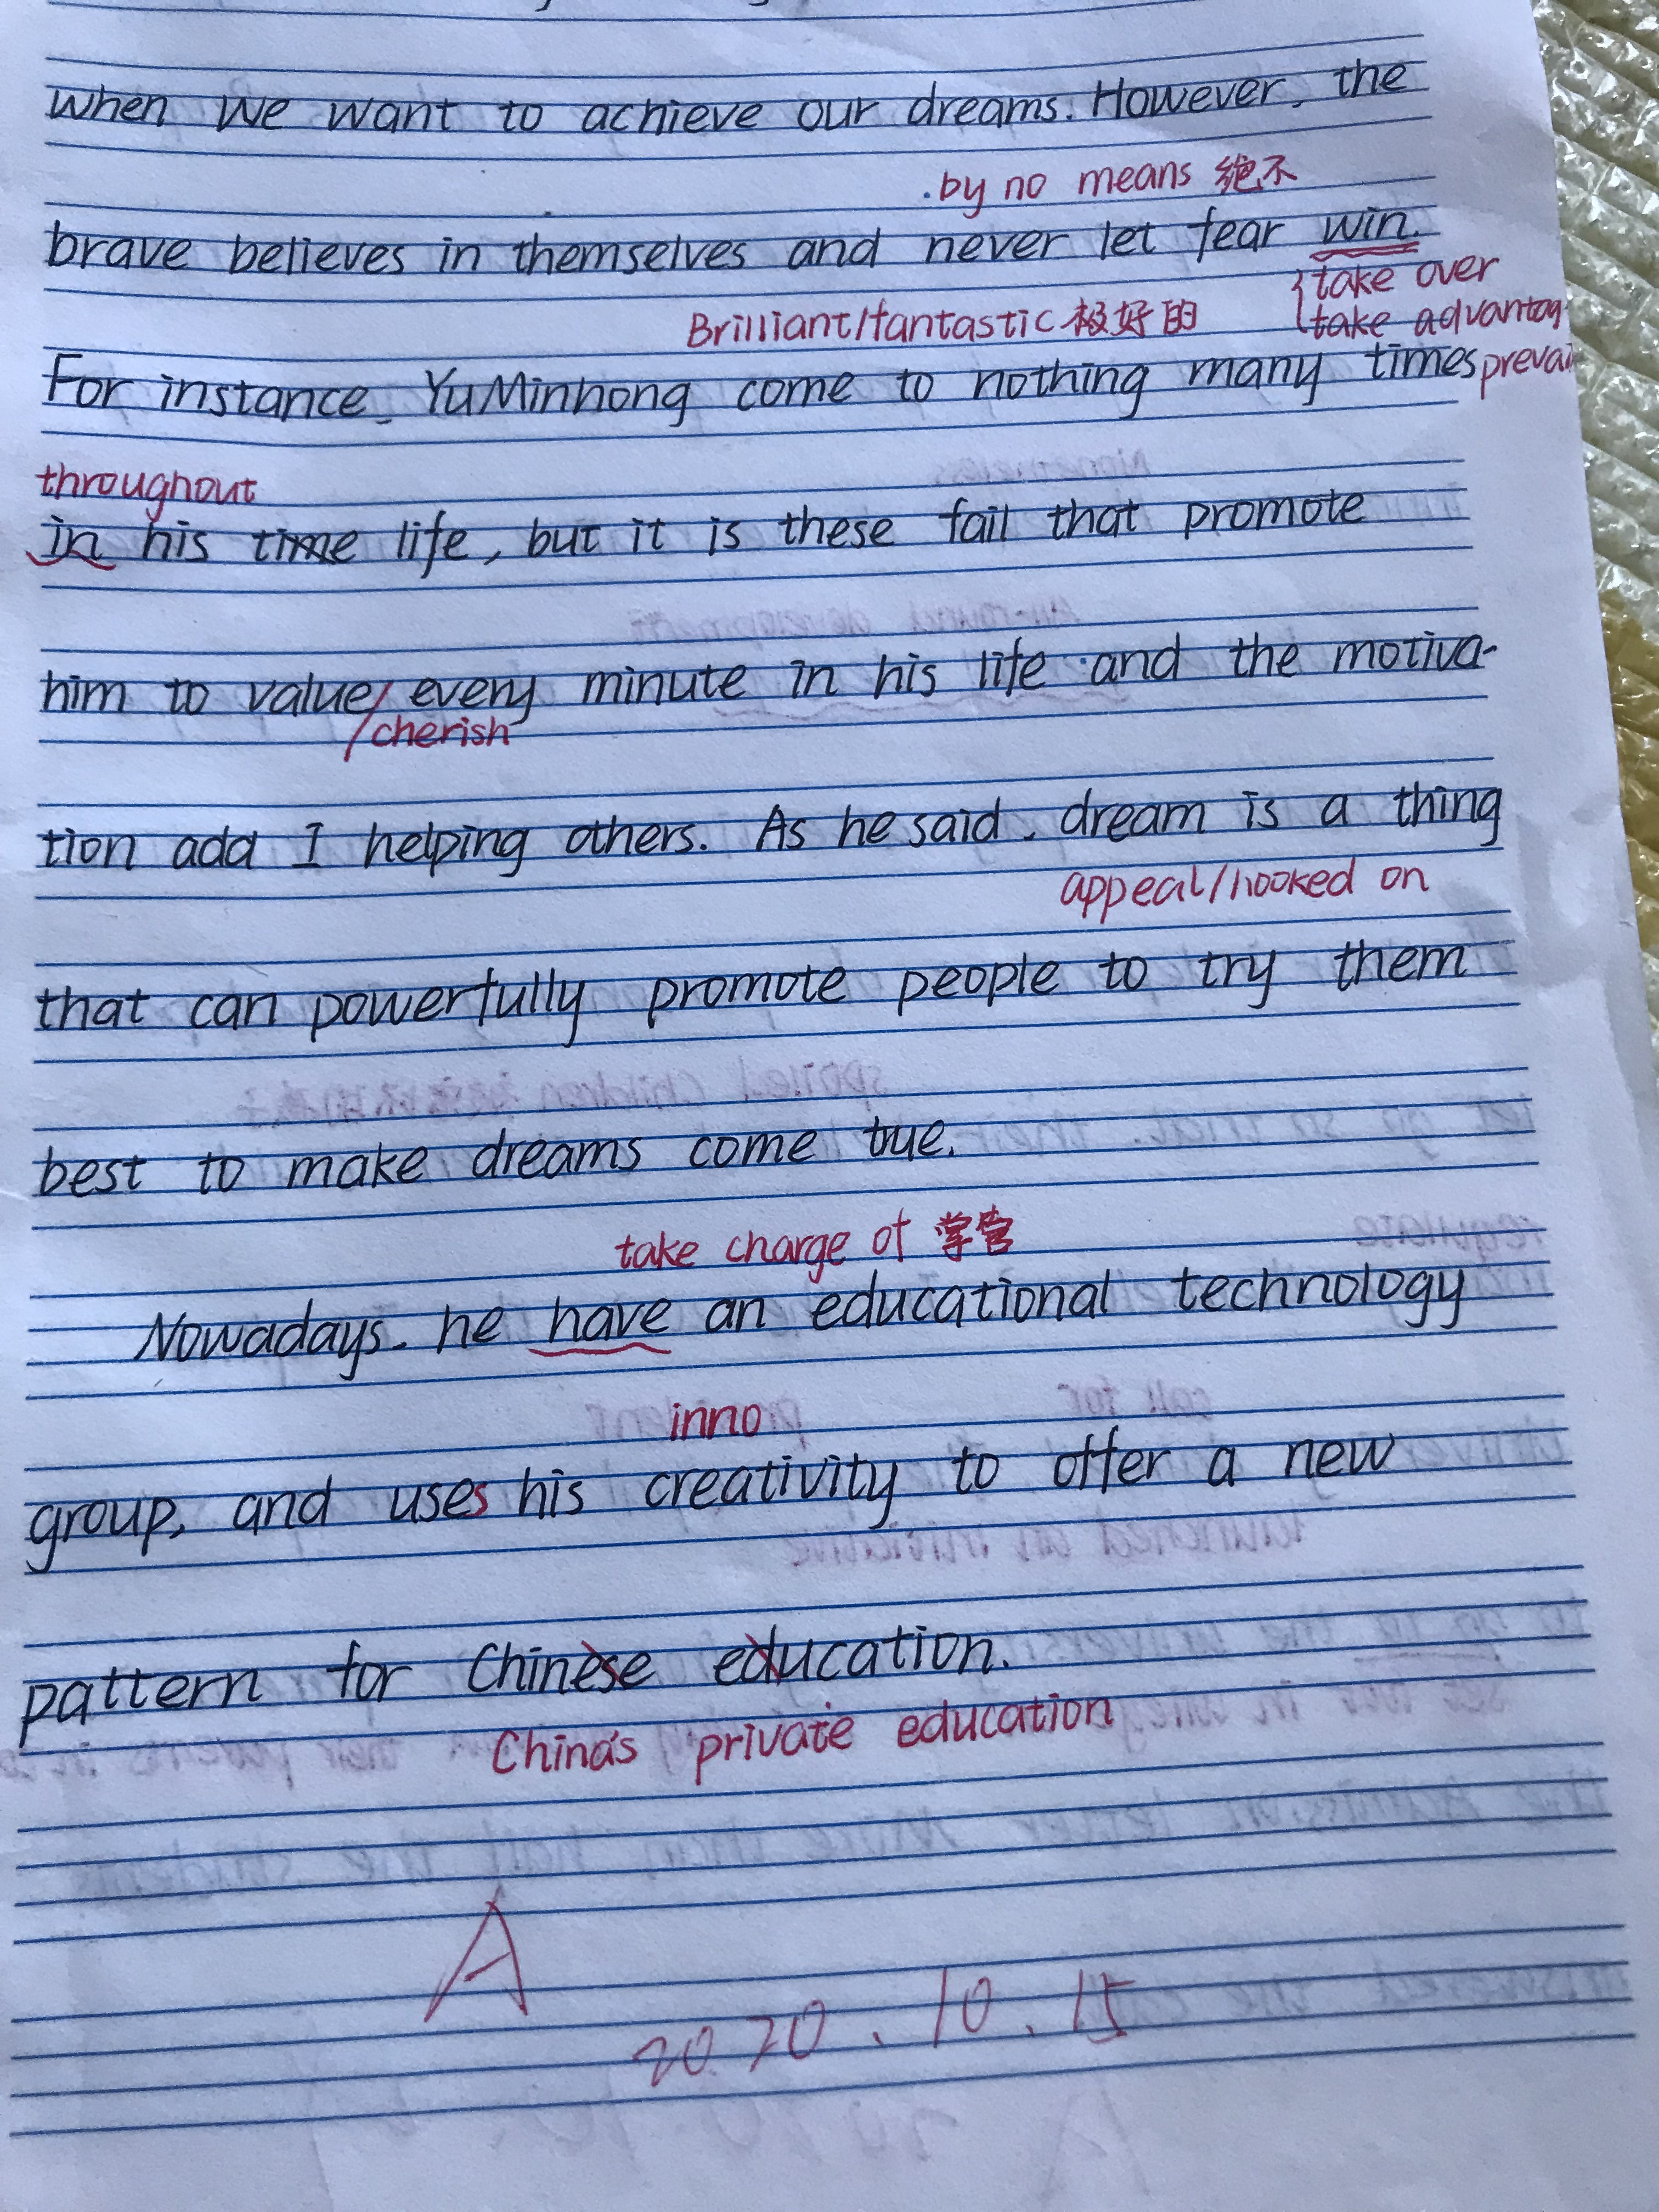 when we want to achieve our dreams. However, the
by no means 绝不
brave believes in themselves and never let fear win.
take over
Brilliant/fantastic 极好的
take advantag
For instance, YuMinhong come to nothing many times
prevai
throughout
in his time life, but it is these fail that promote
him to value every minute in his life and the motiva-
/cherish
tion add I helping others. As he said, dream is a thing
appeal/hooked on
that can powerfully promote people to try them
best to make dreams come true.
take charge of 掌管
Nowadays, he have an educational technology
inno
group, and uses his creativity to offer a new
pattern for Chinese education.
China's private education
A
2020.10.15